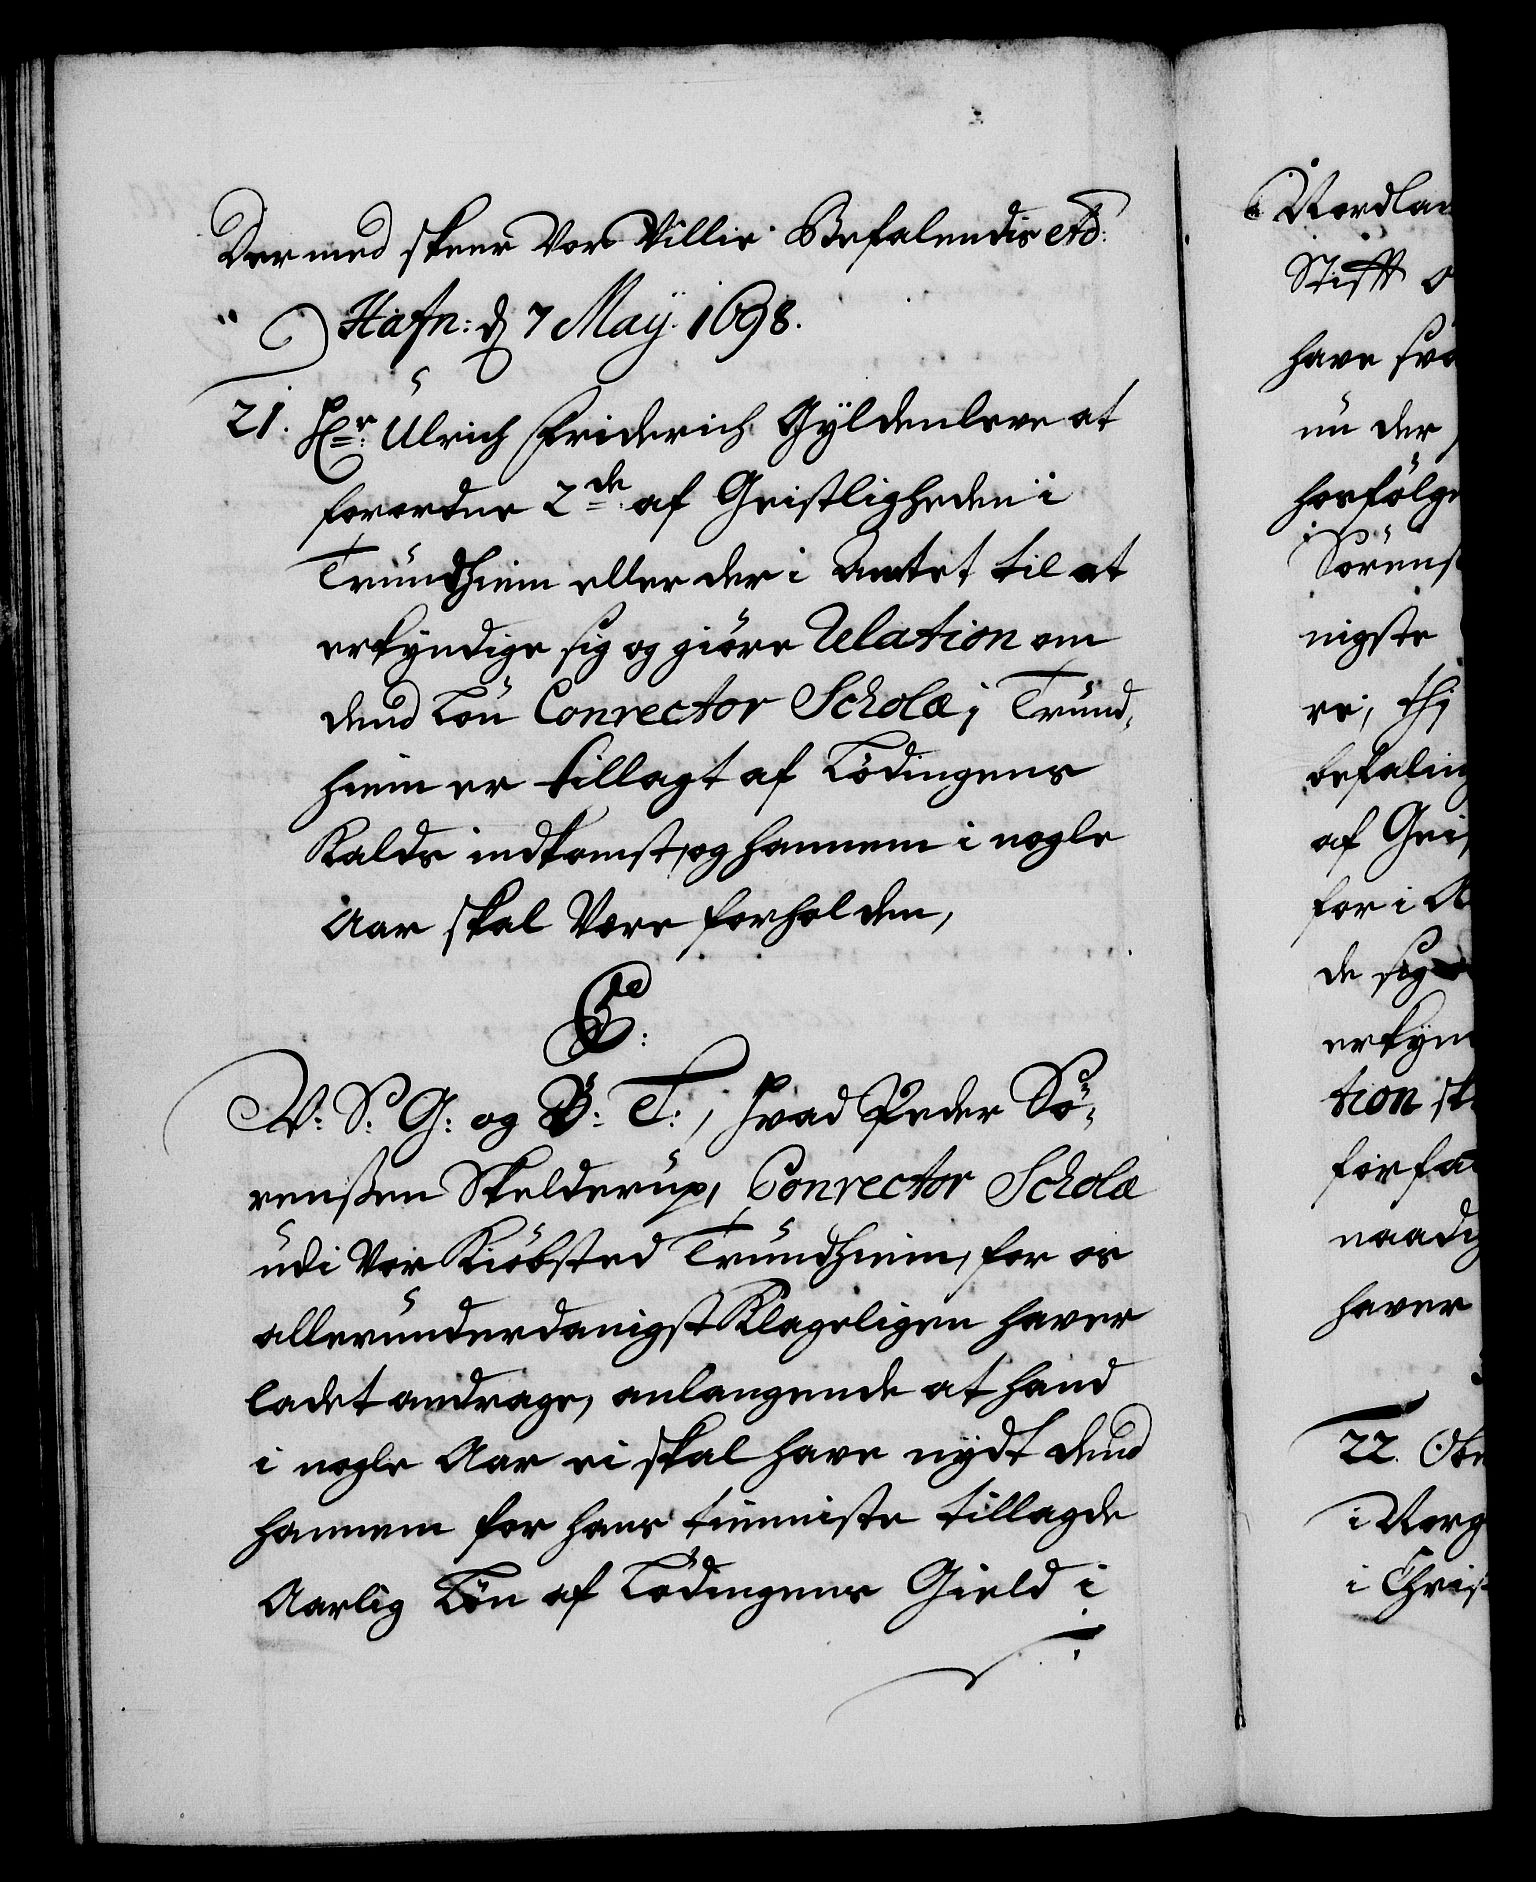 Der med skeer Vor Villie. Befalendis etc:
Hafn: d 7 Maÿ. 1698.
21. Hr: Ulrich Friderich Gÿldenleve at
forordne 2de: af Geistligheden i
Trundhiem eller der i Amtet til at
erkyndige sig og giöre Relation om
dend Lön Conrector Scholæ i Trund,
hiem er tillagt af Lödingens
Kalds indkomst, og hannem i nogle
Aar skal Være forholden,
C5.
V: S: G: og B: T:, hvad Peder Sö,
renßen Skelderup, Conrector Scholæ
udi Vor Kiöbsted Trundhiem, for os
allerunderdanigst Klageligen haver
ladet andrage, anlangende at hand
i nogle Aar ei skal have nÿdt dend
hannem for hans tienniste tillagde
Aarlig Lön af Lödingens Gield i
i Nordlan
Stifft o
have sva
nu der
forfölge
Sörens
nigste
re, thi
befaling
af Geis
for i A
de sig
erkyn
tion sk
forfat
naadig
haver
22. Obe
i Norg
i Chris